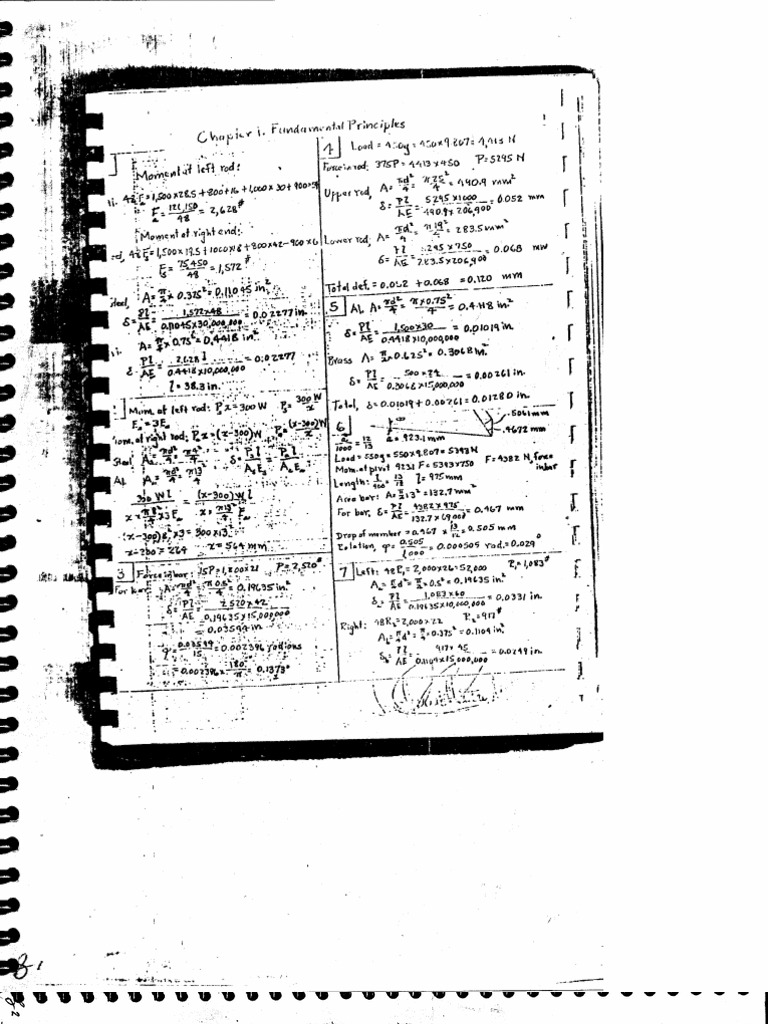 Chapter 1. Fundamental Principles
Moment at left rod:
=1,500×28.5+800×16+1,000×30+900×54
E = 126,150/48 = 2,628#
Moment at right end:
=1,500×19.5+1000×18+800×42-900×6
= 75450/48 = 1,572#
Steel, A = π/4 × 0.375² = 0.11045 in²
δ = Pl/AE = 1,572×48/0.11045×30,000,000 = 0.02277 in.
A = π/4 × 0.75² = 0.4418 in²
δ = Pl/AE = 2,628 l/0.4418×10,000,000 = 0.02277
l = 38.3 in.
Mom. of left rod: P x = 300 W P = 300W/x
E = 3E
Mom. of right rod: P x = (x-300)W P = (x-300)W/x
Steel A = πd²/4 = π8²/4 δ = P l/A E = P l/A E
Al. A = πd²/4 = π13²/4
300 W l/x × π8²/4 × 3E = (x-300) W l/x × π13²/4 E
(x-300)8² × 3 = 300×13²
x-300 = 264 x = 564 mm
3 Force in bar: 15P = 1,800×21 P = 2,520#
For bar, A = πd²/4 = π0.5²/4 = 0.19635 in²
δ = Pl/AE = 2,520×42/0.19635×15,000,000
= 0.03594 in.
φ = 0.03594/15 = 0.002396 radians
= 0.002396 × 180/π = 0.1373°
4 Load = 450g = 450×9.807 = 4,413 N
Force in rod: 375P = 4413×450 P = 5295 N
Upper rod, A = πd²/4 = π25²/4 = 490.9 mm²
δ = Pl/AE = 5295×1000/490.9×206,900 = 0.052 mm
Lower rod, A = πd²/4 = π19²/4 = 283.5 mm²
δ = Pl/AE = 5295×750/283.5×206,900 = 0.068 mm
Total def. = 0.052 + 0.068 = 0.120 mm
5 Al. A = πd²/4 = π×0.75²/4 = 0.4418 in²
δ = Pl/AE = 1,500×30/0.4418×10,000,000 = 0.01019 in.
Brass A = π/4 × 0.625² = 0.3068 in.²
δ = Pl/AE = 500×24/0.3068×15,000,000 = 0.00261 in.
Total, δ = 0.01019 + 0.00261 = 0.01280 in.
6
.5061 mm
.4672 mm
a/1000 = 12/13 a = 923.1 mm
Load = 550g = 550×9.807 = 5393 N
Mom. at pivot 923.1 F = 5393×750 F = 4382 N, force in bar
Length: l = 975 mm
Area bar: A = π/4 13² = 132.7 mm²
For bar, δ = Pl/AE = 4382×975/132.7×69,000 = 0.467 mm
Drop of member = 0.467 × 13/12 = 0.505 mm
Rotation, φ = 0.505/1000 = 0.000505 rad. = 0.029°
7 Left: 48P₁ = 2,000×26 = 52,000 P₁ = 1,083#
A = π/4 d² = π/4 × 0.5² = 0.19635 in²
δ = Pl/AE = 1,083×60/0.19635×10,000,000 = 0.0331 in.
Right: 48P₂ = 2,000×22 P₂ = 917#
A = π/4 d² = π/4 × 0.375² = 0.1104 in²
δ = Pl/AE = 917×45/0.1104×15,000,000 = 0.0249 in.